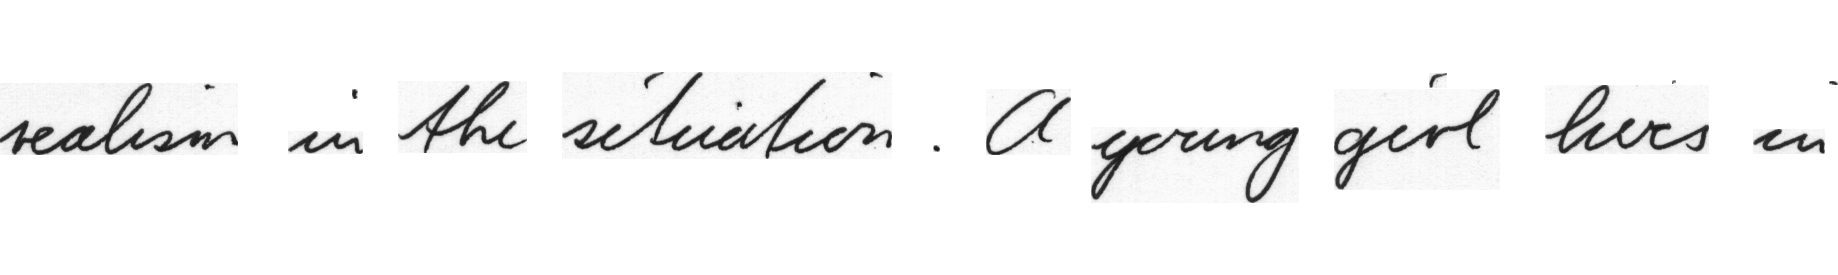 realism in the situation . A young girl lives in